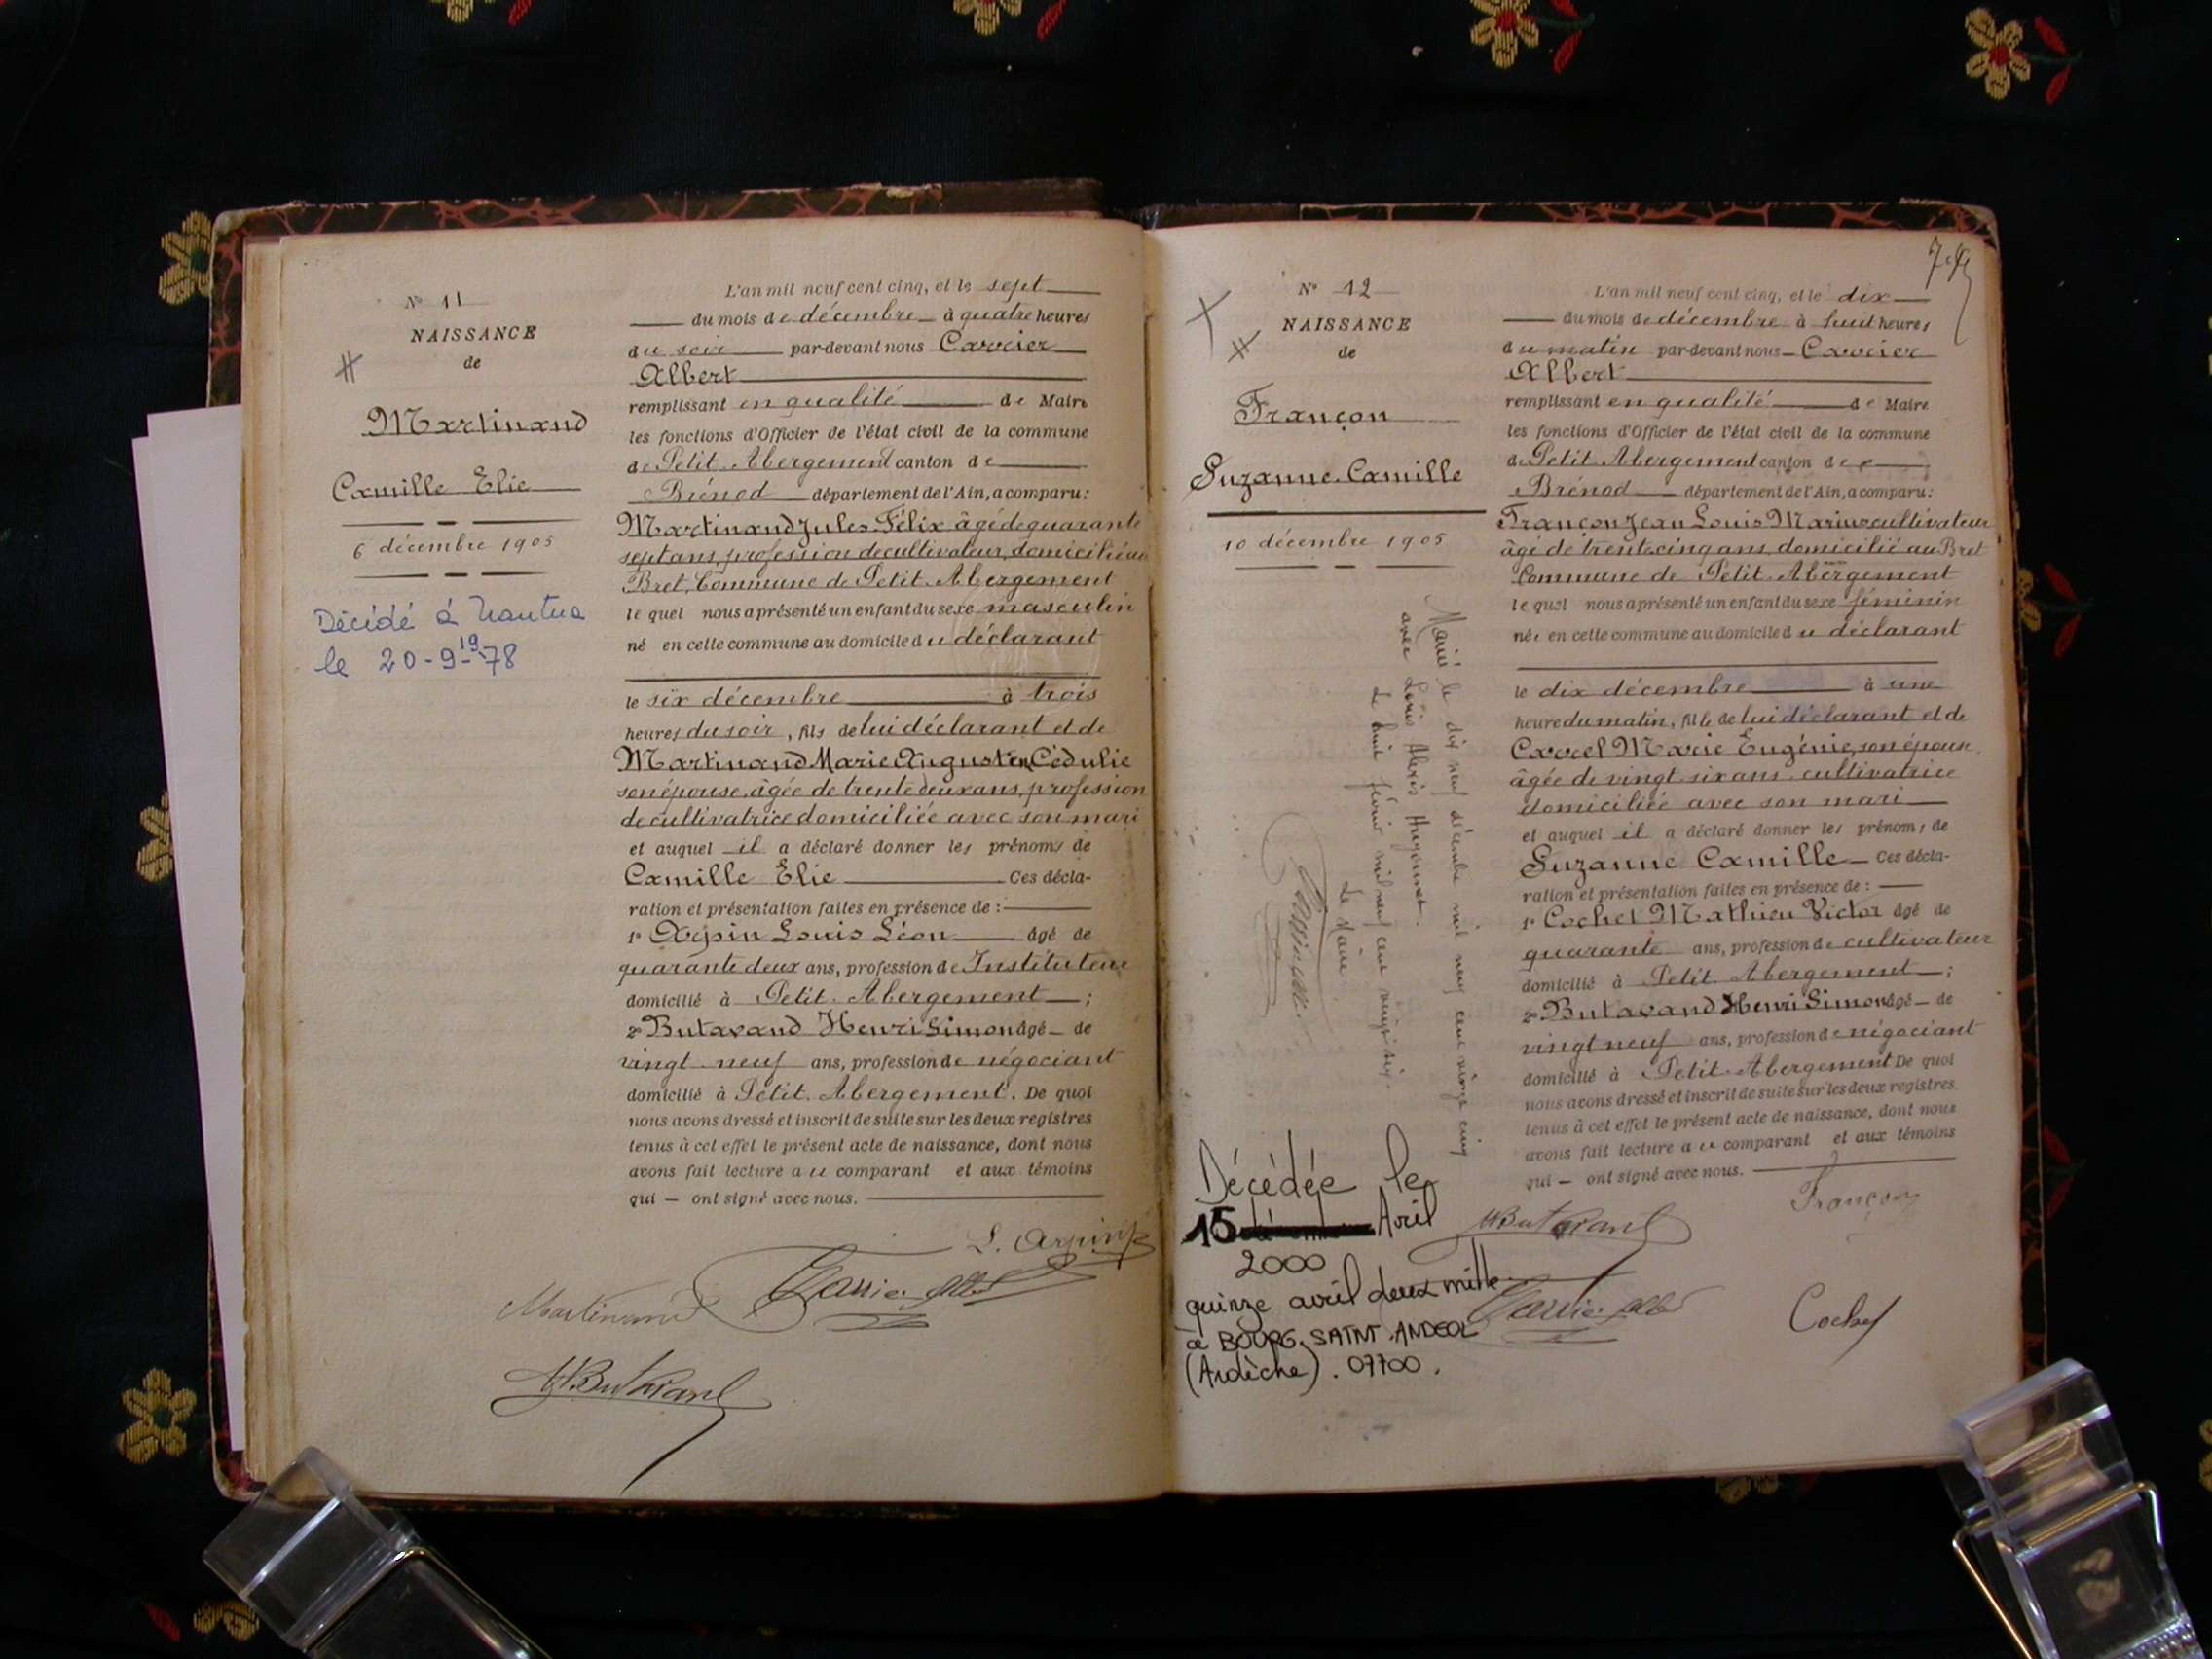 N° 11
NAISSANCE
de
Martinand
Camille Elie
6 décembre 1905
Décédé à Nantua
le 20-9-1978
L'an mil neuf cent cinq, et le sept
du mois de décembre à quatre heures
du soir par-devant nous Carrier
Albert
remplissant en qualité de Maire
les fonctions d'Officier de l'état civil de la commune
de Petit Abergement canton de
Brénod département de l'Ain, a comparu :
Martinand Jules Félix âgé de quarante
sept ans, profession de cultivateur, domicilié au
Bret, Commune de Petit Abergement
lequel nous a présenté un enfant du sexe masculin
né en cette commune au domicile du déclarant
le six décembre à trois
heures du soir, fils de lui déclarant et de
Martinand Marie Cédulie
son épouse, âgée de trente deux ans, profession
de cultivatrice domiciliée avec son mari
et auquel il a déclaré donner les prénoms de
Camille Elie Ces décla-
ration et présentation faites en présence de :
1° Arpin Louis Léon âgé de
quarante deux ans, profession de Instituteur
domicilié à Petit Abergement ;
2° Butavand Henri Simon âgé de
vingt neuf ans, profession de négociant
domicilié à Petit Abergement. De quoi
nous avons dressé et inscrit de suite sur les deux registres
tenus à cet effet le présent acte de naissance, dont nous
avons fait lecture au comparant et aux témoins
qui ont signé avec nous.
L. Arpin
Martinand Carrier Albt
H Butavand
N° 12
NAISSANCE
de
Françon
Suzanne Camille
10 décembre 1905
Mariée le dix neuf décembre mil neuf cent vingt cinq
avec Louis Alexis Hugonnet.
Le huit février mil neuf cent vingt six.
Le Maire
Décédée le
15 Avril
2000
quinze avril deux mille
à BOURG-SAINT-ANDEOL
(Ardèche). 07700.
L'an mil neuf cent cinq, et le dix
du mois de décembre à huit heures
du matin par-devant nous Carrier
Albert
remplissant en qualité de Maire
les fonctions d'Officier de l'état civil de la commune
de Petit Abergement canton de
Brénod département de l'Ain, a comparu :
Françon Jean Louis Marius cultivateur
âgé de trente cinq ans, domicilié au Bret
Commune de Petit Abergement
lequel nous a présenté un enfant du sexe féminin
née en cette commune au domicile du déclarant
le dix décembre à une
heure du matin, fille de lui déclarant et de
Carrel Marie Eugénie, son épouse,
âgée de vingt six ans, cultivatrice
domiciliée avec son mari
et auquel il a déclaré donner les prénoms de
Suzanne Camille Ces décla-
ration et présentation faites en présence de :
1° Cochet Mathieu Victor âgé de
quarante ans, profession de cultivateur
domicilié à Petit Abergement ;
2° Butavand Henri Simon âgé de
vingt neuf ans, profession de négociant
domicilié à Petit Abergement De quoi
nous avons dressé et inscrit de suite sur les deux registres
tenus à cet effet le présent acte de naissance, dont nous
avons fait lecture au comparant et aux témoins
qui ont signé avec nous.
H Butavand Françon
Carrier Albt Cochet